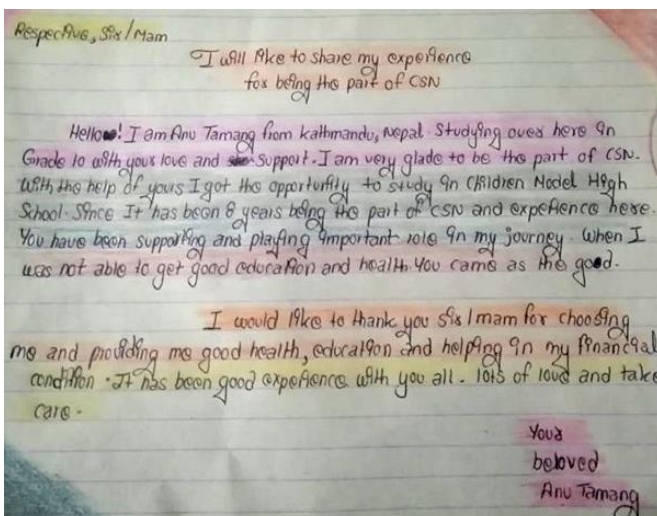 Respective, Sir/Mam
I will like to share my experience
for being the part of CSN
Hello! I am Anu Tamang from kathmandu, Nepal. Studying over here in
Grade 10 with your love and support. I am very glade to be the part of CSN.
With the help of yours I got the opportunity to study in Children Model High
School. Since It has been 8 years being the part of CSN and experience here.
You have been supporting and playing important role in my journey. When I
was not able to get good education and health. You came as the good.
I would like to thank you sir/mam for choosing
me and providing me good health, education and helping in my financial
condition. It has been good experience with you all. lots of love and take
care.
Your
beloved
Anu Tamang